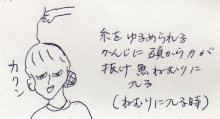 糸をゆるめられる
かんじに頭から力が
抜け思ねむりに
入る
(ねむりに入る時)
カクン